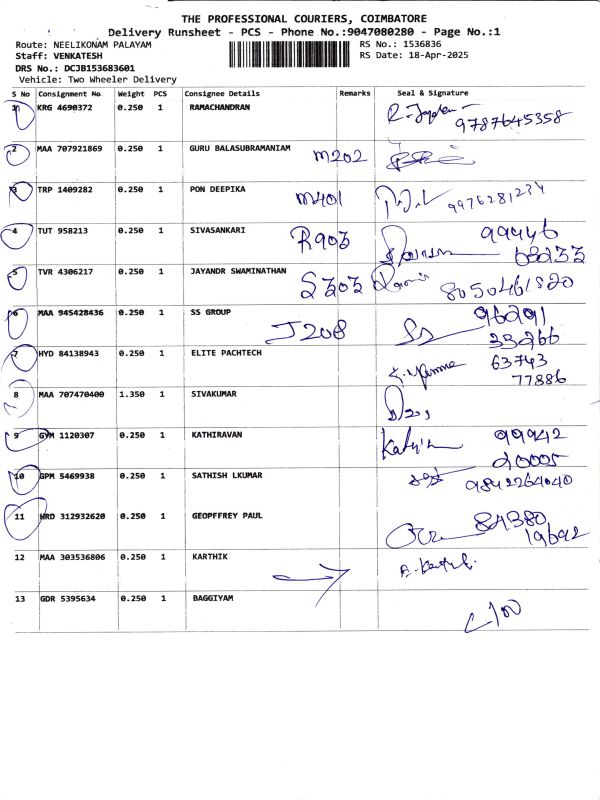 THE PROFESSIONAL COURIERS, COIMBATORE
Delivery Runsheet - PCS - Phone No.:9047080280 - Page No.:1
Route: NEELIKONAM PALAYAM
Staff: VENKATESH
DRS No.: DCJB153683601
Vehicle: Two Wheeler Delivery
RS No.: 1536836
RS Date: 18-Apr-2025
S No Consignment No Weight PCS Consignee Details Remarks Seal & Signature
1 KRG 4690372 0.250 1 RAMACHANDRAN
9787645358
2 MAA 707921869 0.250 1 GURU BALASUBRAMANIAM M202
3 TRP 1409282 0.250 1 PON DEEPIKA M401 9976281234
4 TUT 958213 0.250 1 SIVASANKARI R903 99446
68233
5 TVR 4306217 0.250 1 JAYANDR SWAMINATHAN S303 8050461820
6 MAA 945428436 0.250 1 SS GROUP J208 SS 96291
33266
7 HYD 84138943 0.250 1 ELITE PACHTECH 63743
77886
8 MAA 707470400 1.350 1 SIVAKUMAR
9 GYM 1120307 0.250 1 KATHIRAVAN 99942
20005
10 GPM 5469938 0.250 1 SATHISH LKUMAR 9842264040
11 HRD 312932620 0.250 1 GEOPFFREY PAUL 84380
19692
12 MAA 303536806 0.250 1 KARTHIK
13 GDR 5395634 0.250 1 BAGGIYAM